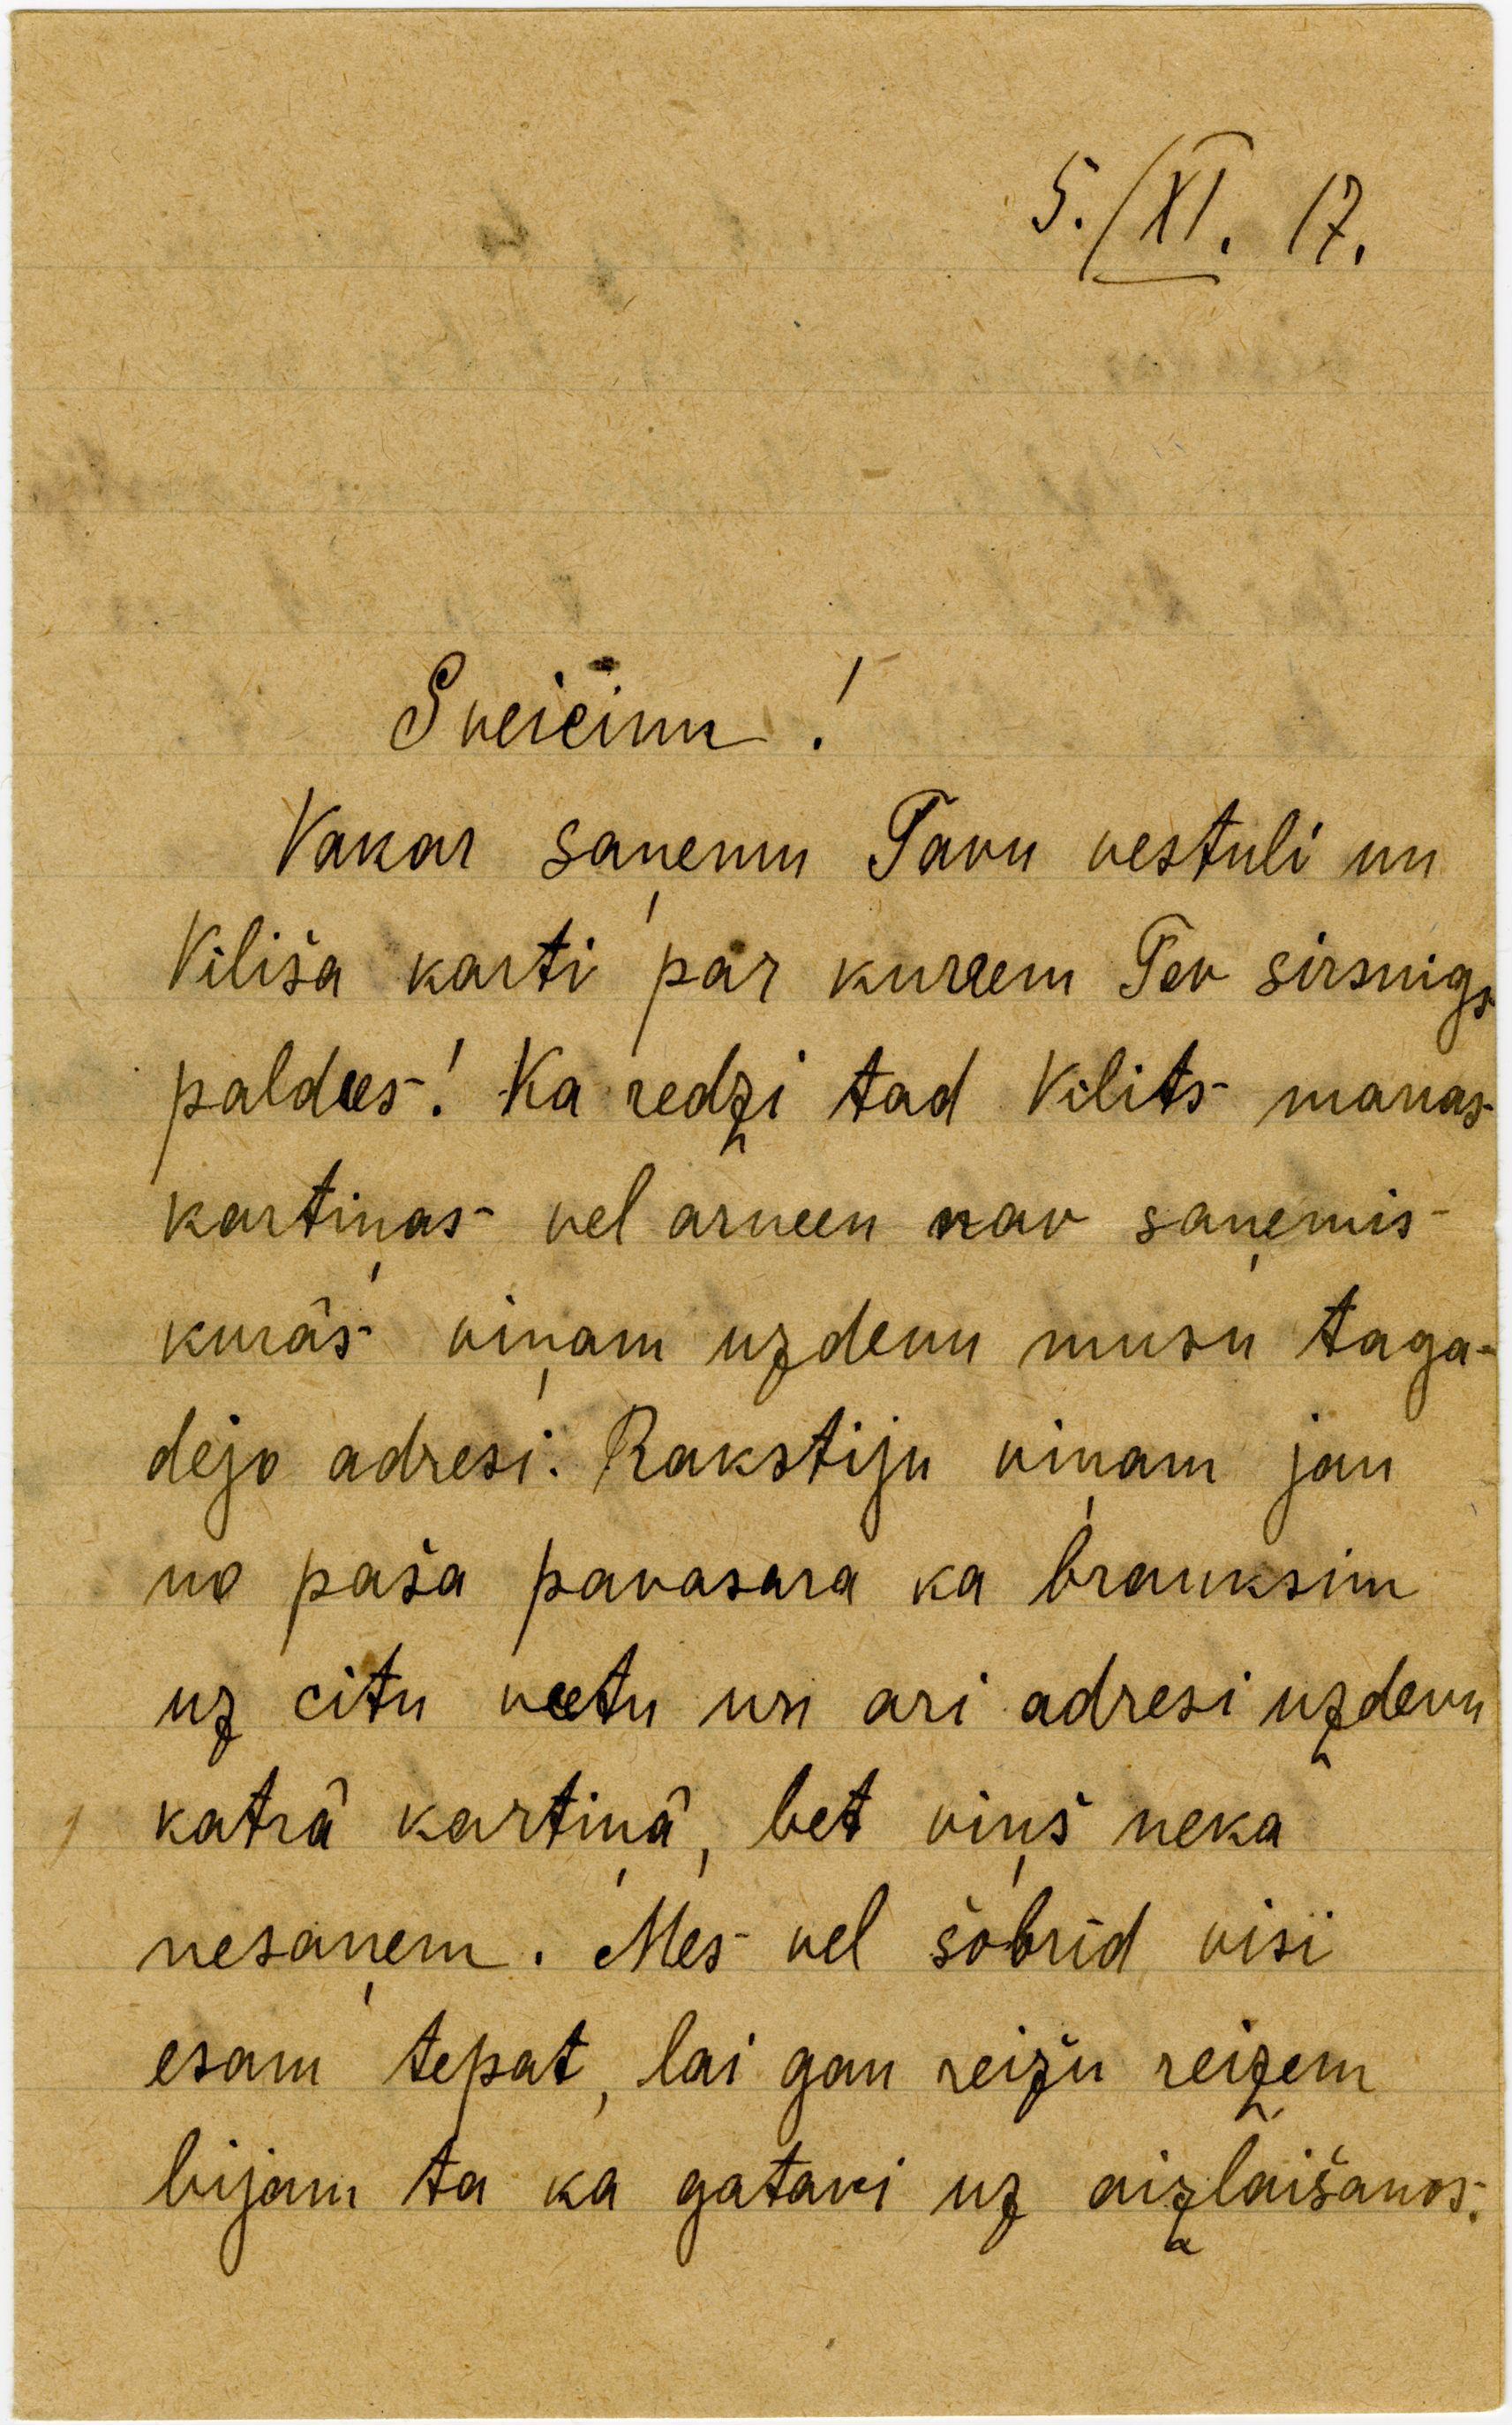 5./XI. 17.
Sveicinu!
Vakar saņemu Tavu vestuli un
Viliša karti par kureem Tev sirsnigs
paldees! Ka redzi tad Vilits manas
kartiņas vel arveen nav saņemis
kurâs viņam uzdevu musu taga-
dejo adresi. Rakstiju viņam jau
no paša pavasara ka brauksim
uz citu veetu un ari adresi uzdevu
katrâ kartiņâ, bet viņš neka
nesaņem. Mes vel šobrid visi
esam tepat, lai gan reižu reizem
bijam ta ka gatavi uz aizlaišanos.